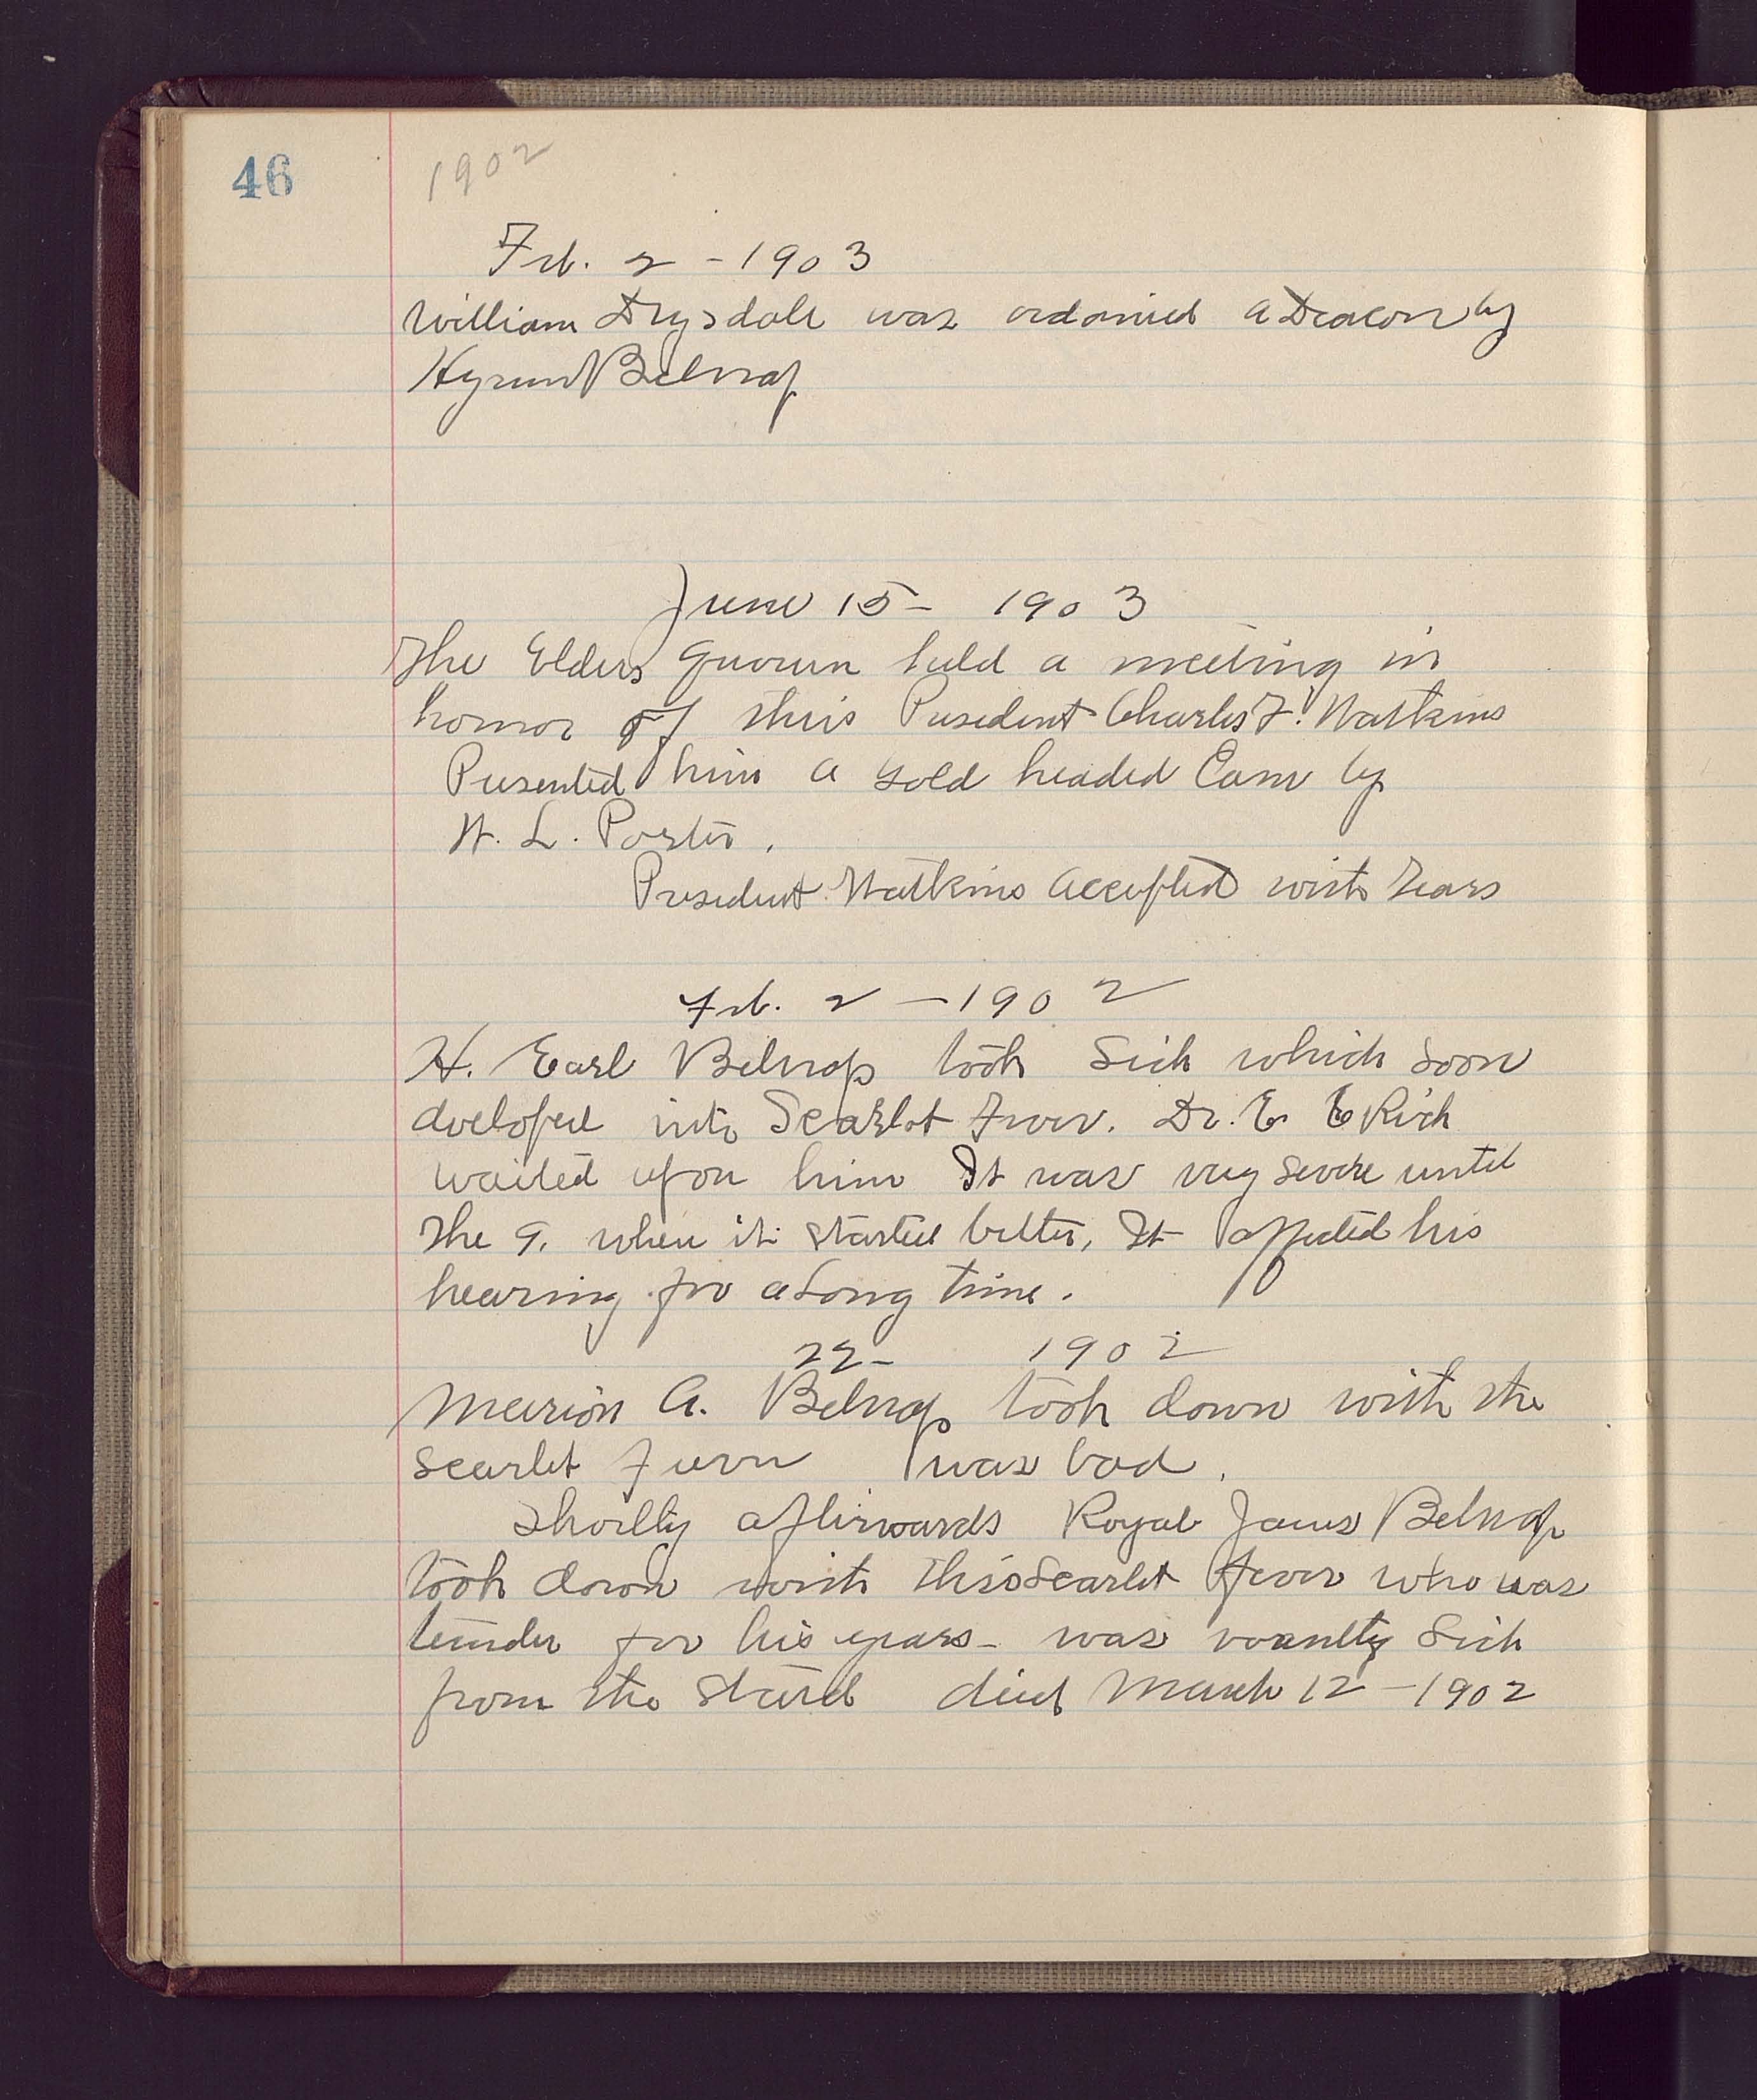 46
1902
Feb. 2 - 1903
William Drysdale was ordanied a Deacon by
Hyrum Belnap
June 15 - 1903
The Elders Quorum held a meeting in
honor of their President Charles F. Watkins
Presented him a gold headed Cane by
W. L. Porter.
President Watkins accepted with Tears
Feb. 2 - 1902
H. Earl Belnap took Sick which soon
developed into Scarlet Fever. Dr. E. E Rich
waited upon him It was very severe until
the 9. when it started better, It affected his
hearing for a long time.
22 - 1902
Marion A. Belnap took down with the
scarlet Fever was bad.
Shortly afterwards Royal James Belnap
took down with this scarlet fever who was
tender for his years - was Sick
from the start died March 12 - 1902